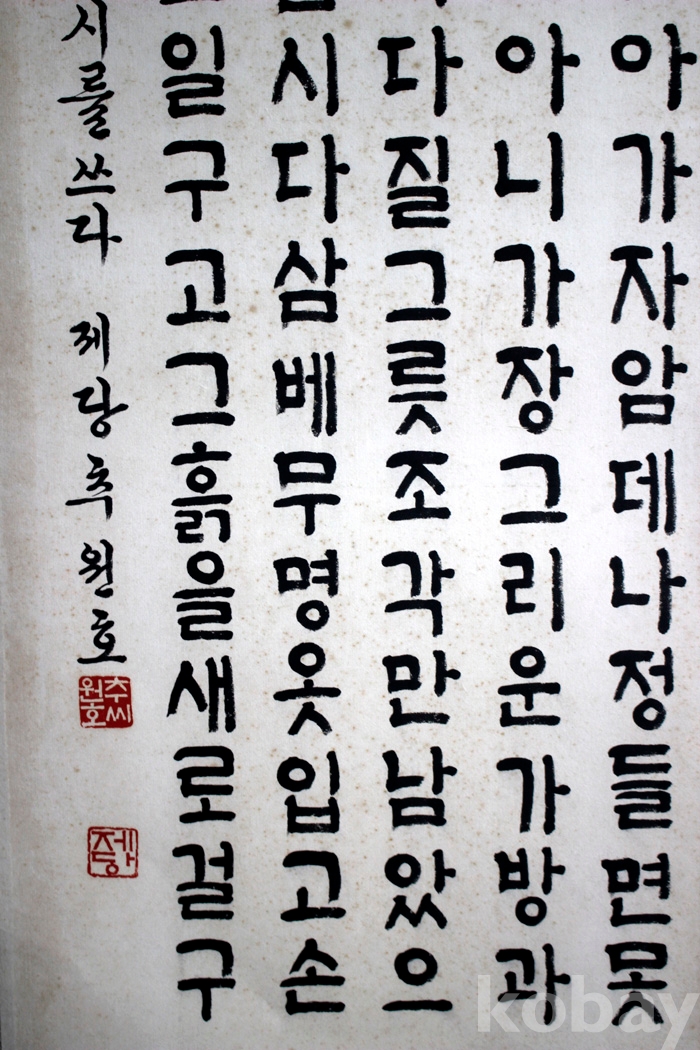 아가자암데나정들면못
아니가장그리운가방과
다질그릇조각만남았으
시다삼베무명옷입고손
일구고그흙을새로걸구
시를쓰다 제당추원호
추씨원호
제당
kobay